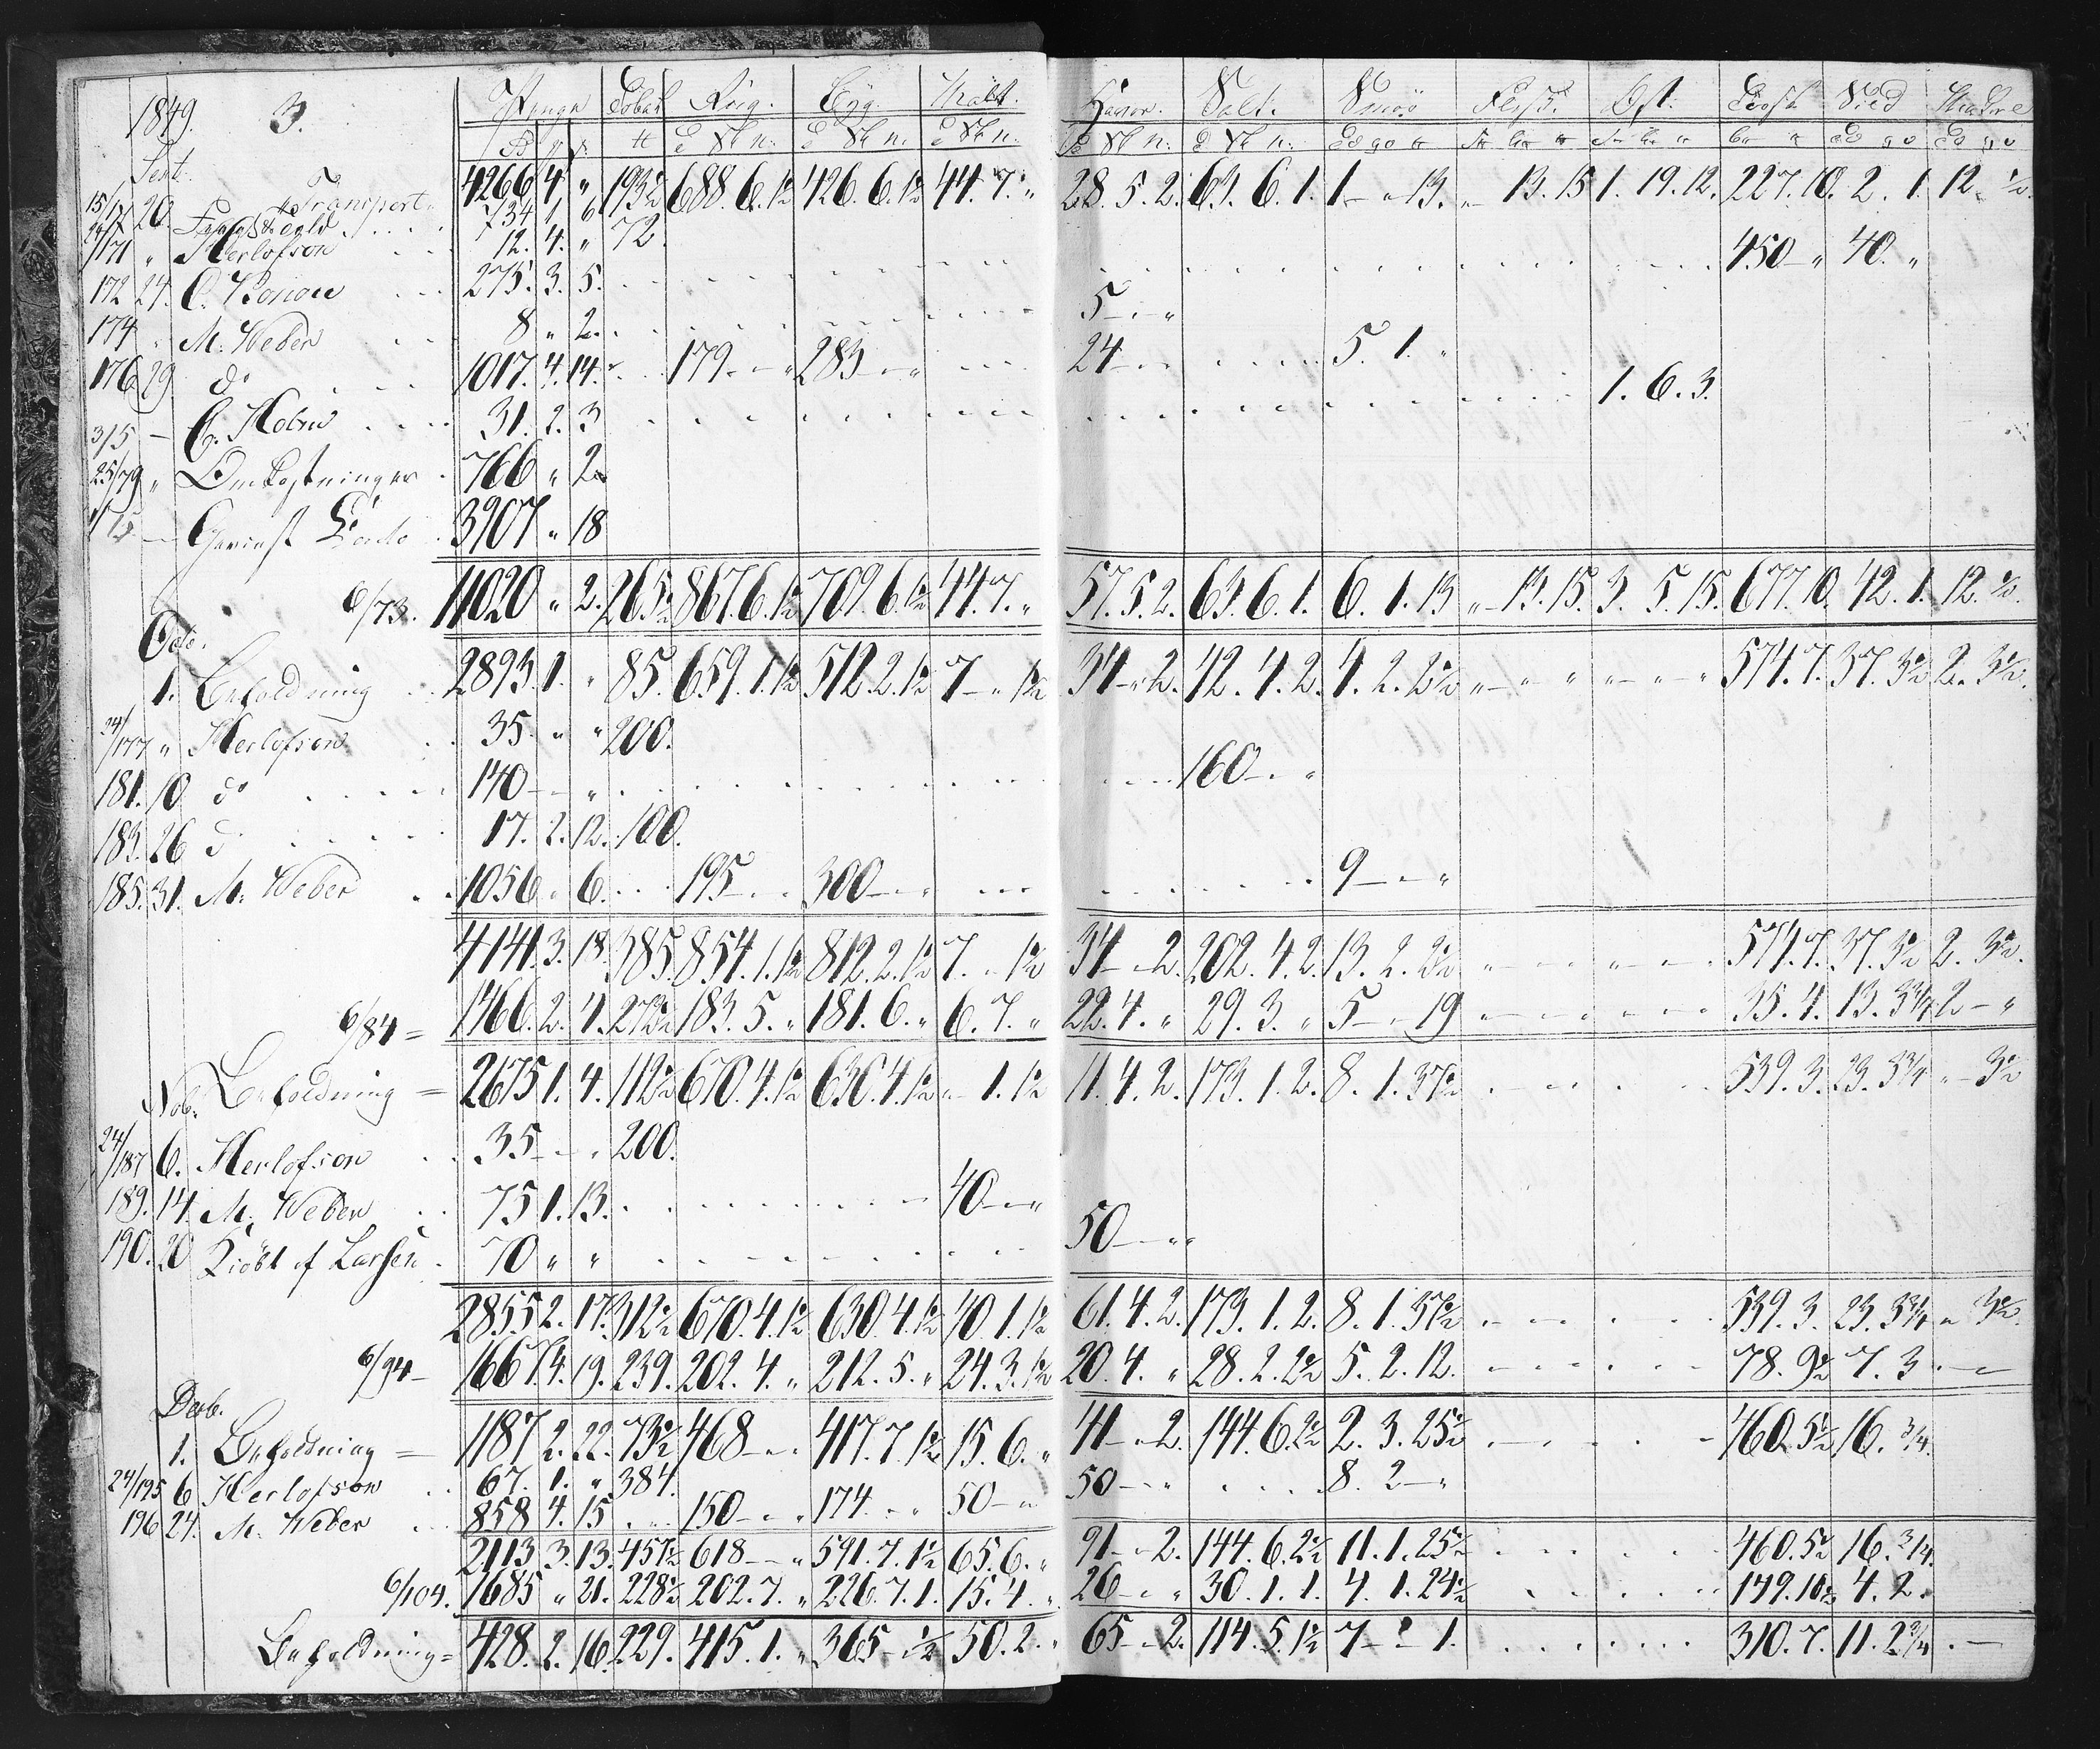 1849. 3. Penge Tobak Rug. Byg. Malt. Havre. Salt. Smör Flesk. Ost. Törfisk Sild
Sept.
Transport. 4266 4 " 193½ 688. 6. 1½ 426. 6. 1½ 44. 7. " 28. 5. 2. 63. 6. 1. 1 - " 13. " - 13. 15 1. 19. 12. 227. 10. 2. 1. 12. ½.
15/171 20. 734 1. 6
24/171 " Herlofson 12. 4. " 72. 450 - " 40. "
172 27. C. Bonow 275. 3. 5. 5 - - "
174 " M. Weber 8 " 2. 24 - - 5. 1. "
176 29 do 1017. 4. 14. 179 - - " 283 - - " 1. 6. 3.
3/5 - C. Holm 31. 2. 3
25/79 " Omkostninger 766 " 2
1/15 - Gevinst Conto 3907 " 18
6/73. 11020 " 2. 265½ 867. 6. 1½ 709. 6. 1½ 44. 7. " 57. 5. 2. 63. 6. 1. 6. 1. 13 " - 13. 15. 3. 5. 15. 677. 10. 42. 1. 12. ½.
Octo.
1. Beholdning 2893. 1. " 85. 659. 1. 1½ 512. 2. 1½ 7 - " 1½ 34 - " 2. 42. 4. 2. 4. 2. 2½ " - " " " - " - " 574. 7. 37. 3½ 2. 3½.
24/177 " Herlofson 35. " " 200.
181. 10 do 140 - " 160 - - "
183. 26 do 17. 2. 12. 100.
185. 31. M. Weber 1056 " 6. 195 - - 300 - - " 9 - - "
4141. 3. 18. 385. 854. 1. 1½ 812. 2. 1½ 7. " 1½ 34 - - 2. 202. 4. 2. 13. 2. 2½ 574. 7. 37. 3½ 2. 3½.
6/84 = 1466. 2. 4. 272½ 183. 5. " 181. 6. " 6. 7. " 22. 4. " 29. 3. " 5 - - 19 35. 4. 13. 3¾ 2 - "
Nob. Beholdning = 2675 1. 4. 112½ 670. 4. 1½ 630. 4. 1½ " - 1. 1½ 11. 4. 2. 173. 1. 2. 8. 1. 37½ 539. 3. 23. 3¾ " - 3½
24/187 6. Herlofson 35 - - " 200.
189. 14. M. Weber 75 1. 13. 40 - - "
190. 20 Kiöbt af Larsen 70 " " 50 - - "
2855 2. 17. 312½ 670. 4. 1½ 630. 4. 1½ 40. 1. 1½ 61. 4. 2. 173. 1. 2. 8. 1. 37½ 539. 3. 23. 3¾ " 3½.
6/94 - 1667. 4. 19. 239. 202. 4. " 212. 5. " 24. 3. 1½ 20. 4. " 28. 2. 2½ 5. 2. 12. 78. 9½ 7. 3
Decb.
1. Beholdning = 1187 2. 22. 73½ 468 - - 417. 7 1½ 15. 6. " 41 - " 2. 144. 6. 2½ 2. 3. 25½ 460. 5½ 16. ¾.
24/195 6 Herlofson 67. 1. " 384.
196 24. M. Weber 858 4. 15 150 - - " 174 - " 50 - " 50 - - " 8. 2 - "
2113 3. 13. 457½ 618 - - " 591. 7. 1½ 65. 6. " 91 - - 2. 144. 6. 2½ 11. 1. 25½ 460. 5½ 16. ¾.
6/104. 1685 " 21. 228½ 202. 7. " 226. 7. 1. 15. 4. " 26 - - " 30. 1. 1. 4. 1. 24½ 149. 10½ 4. 2.
Beholdning = 428. 2. 16. 229. 415. 1. " 365 - ½ 50. 2. " 65 - - 2. 114. 5. 1½ 7 - - 1. 310. 7. 11. 2¾